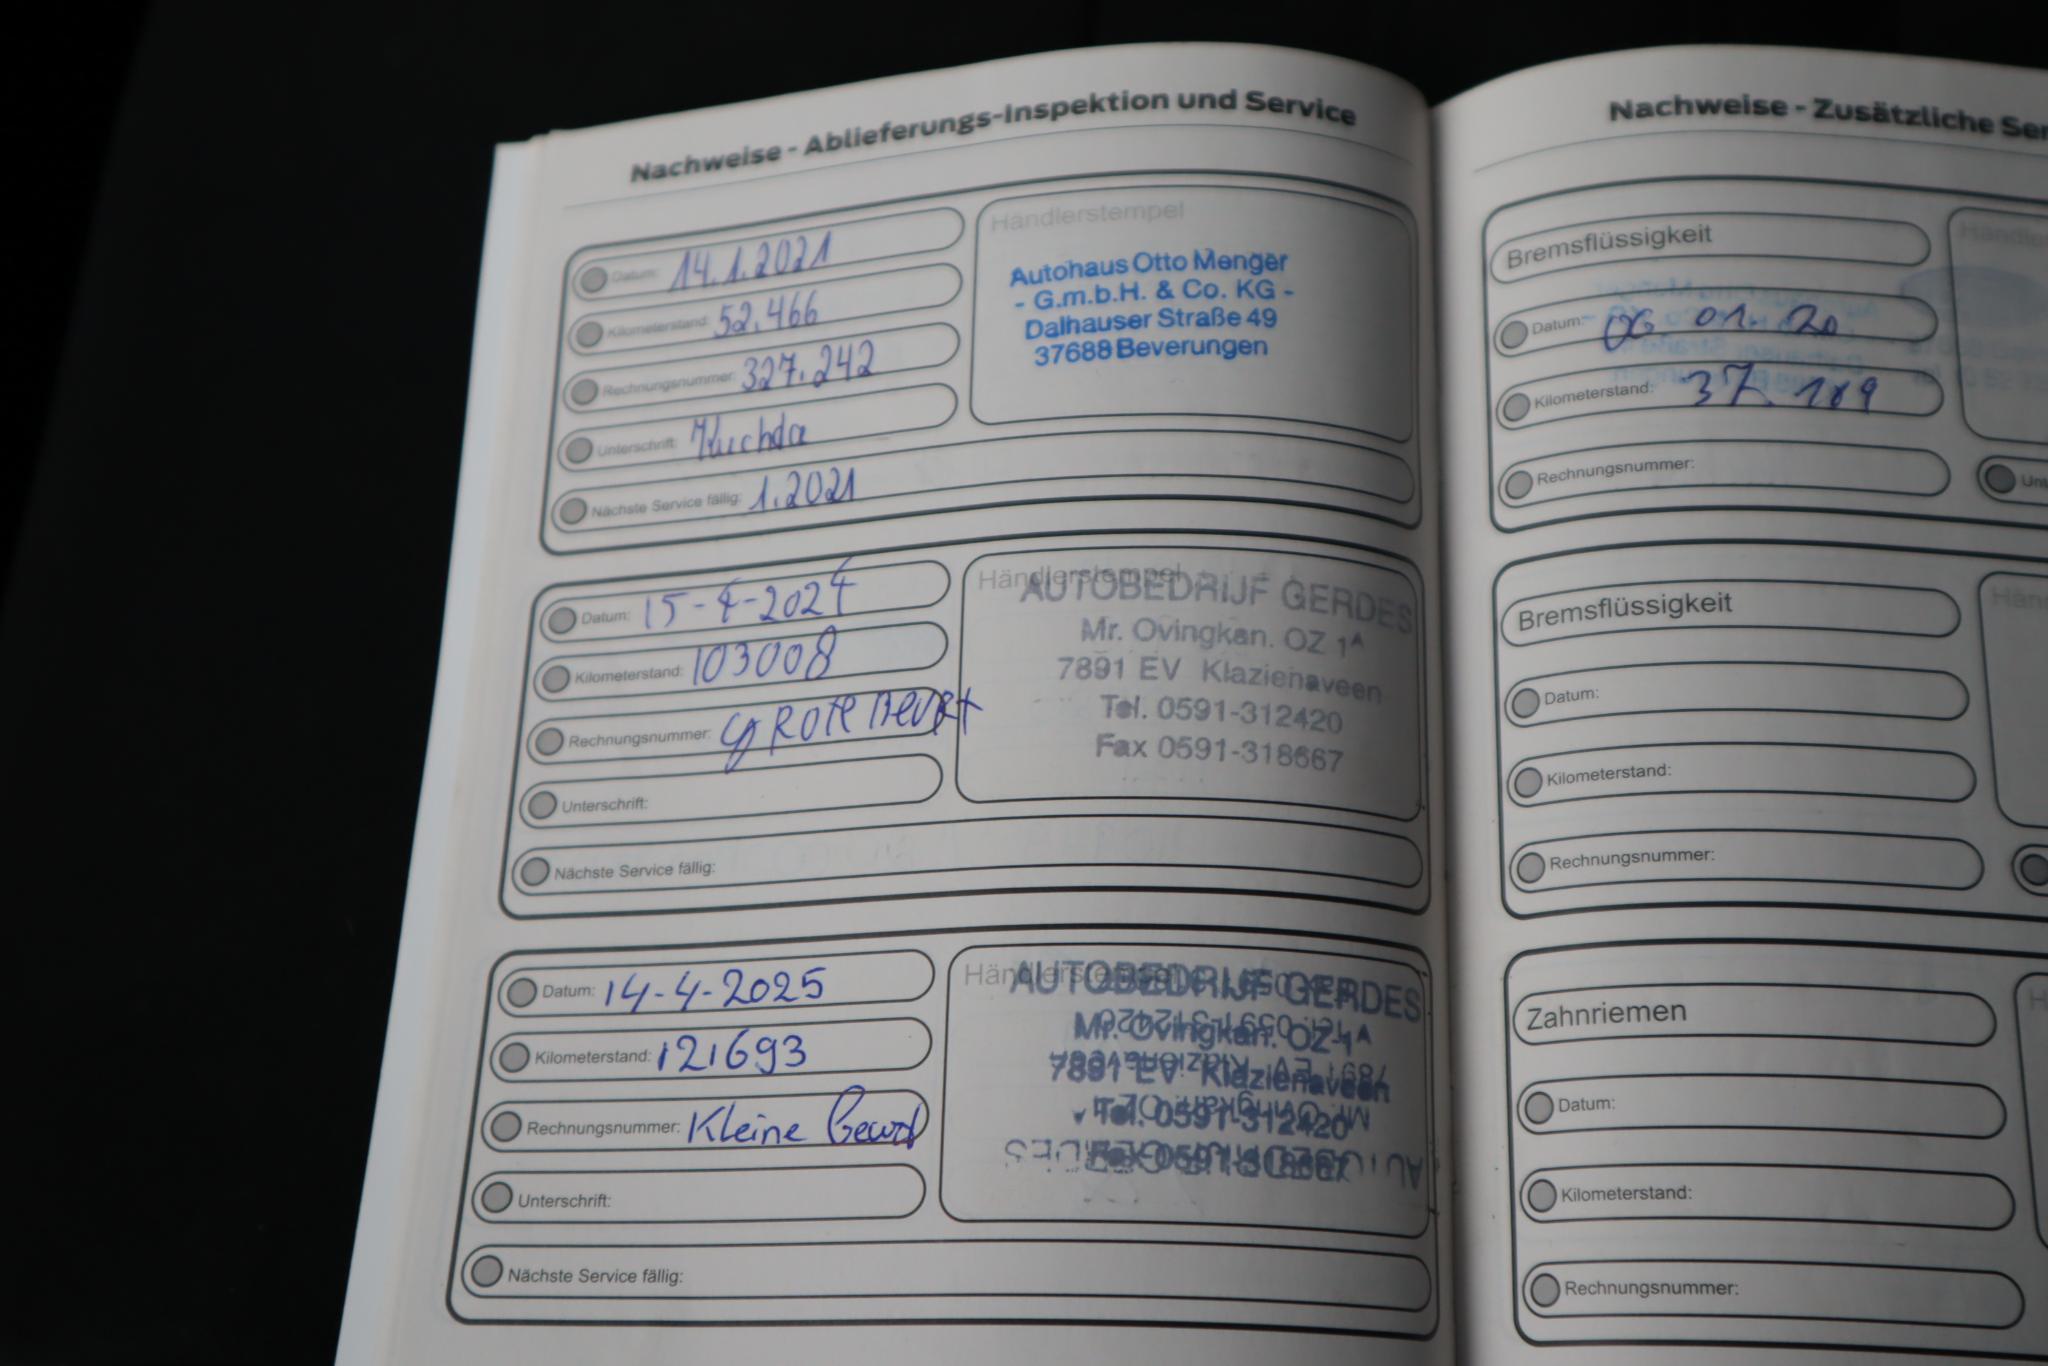 Nachweise - Ablieferungs-Inspektion und Service
Datum: 14.1.2021
Kilometerstand: 52.466
Rechnungsnummer: 327.242
Unterschrift:
Nächste Service fällig: 1.2021
Händlerstempel
Autohaus Otto Menger
- G.m.b.H. & Co. KG -
Dalhauser Straße 49
37688 Beverungen
Datum: 15-4-2024
Kilometerstand: 103008
Rechnungsnummer: GROTE BEURT
Unterschrift:
Nächste Service fällig:
Händlerstempel
AUTOBEDRIJF GERDES
Mr. Ovingkan. OZ 1A
7891 EV Klazienaveen
Tel. 0591-312420
Fax 0591-318667
Datum: 14-4-2025
Kilometerstand: 121693
Rechnungsnummer: Kleine Beurt
Unterschrift:
Nächste Service fällig:
Händlerstempel
AUTOBEDRIJF GERDES
Mr. Ovingkan. OZ 1A
7891 EV Klazienaveen
Tel. 0591-312420
Fax 0591-318667
Nachweise - Zusätzliche Ser
Bremsflüssigkeit
Datum: 06 01. 20
Kilometerstand: 37.189
Rechnungsnummer:
Bremsflüssigkeit
Datum:
Kilometerstand:
Rechnungsnummer:
Zahnriemen
Datum:
Kilometerstand:
Rechnungsnummer: